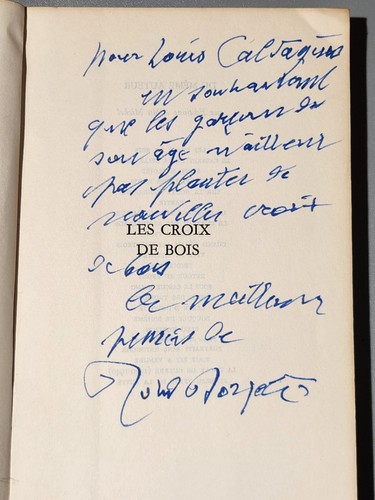 pour Louis
en souhaitant
que les garçons de
son âge n'aillent
pas planter de
nouvelles croix
LES CROIX
DE BOIS
de bois
les meilleures
pensées de